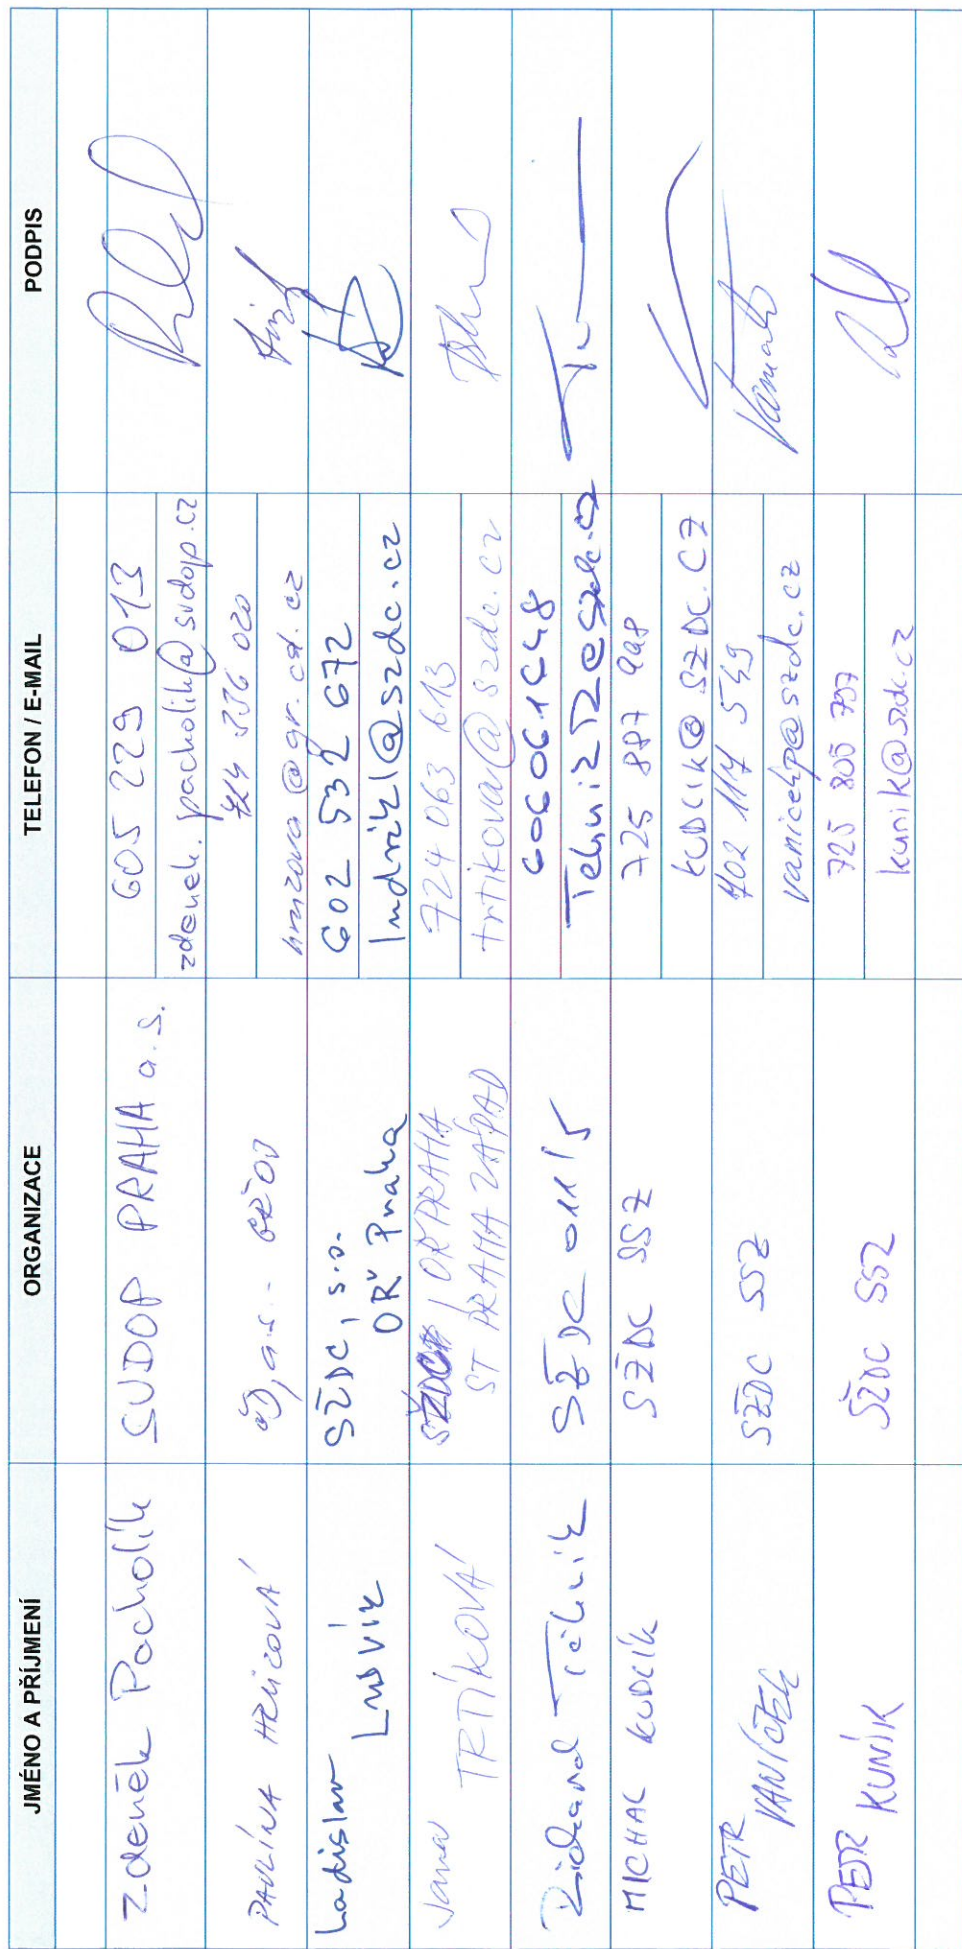 JMÉNO A PŘÍJMENÍ ORGANIZACE TELEFON / E-MAIL PODPIS
Zdeněk Pacholík SUDOP PRAHA a.s. 605 229 013
zdenek.pacholik@sudop.cz
PAVLÍNA ČD, a.s. - 724 336 020
@gr.cd.cz
Ladislav Ludvík SŽDC, s.o. 602 532 672
OŘ Praha ludvikl@szdc.cz
Jana TRTÍKOVÁ SŽDC, OŘ PRAHA 724 063 613
ST PRAHA ZÁPAD trtikova@szdc.cz
Richard Tělnik SŽDC 011/5 606061448
MICHAL KUDLÍK SŽDC SSZ 725 887 998
KUDLIK@SZDC.CZ
PETR VANÍČEK SŽDC SSZ 702 117 549
vanicekp@szdc.cz
PETR KUNÍK SŽDC SSZ 725 805 797
kunik@szdc.cz